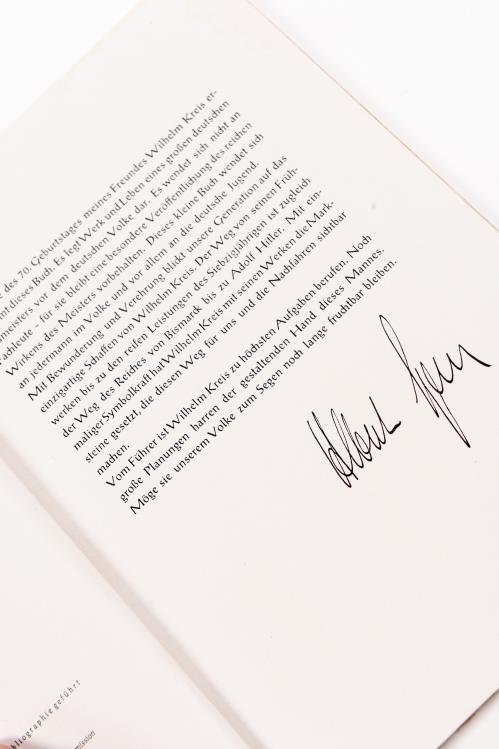 e des 70. Geburtstages meines Freundes Wilhelm Kreis er-
int dieses Buch. Es legt Werk und Leben eines großen deutschen
meisters vor dem deutschen Volke dar. Es wendet sich nicht an
achleute – für sie bleibt eine besondere Veröffentlichung des reichen
Wirkens des Meisters vorbehalten. Dieses kleine Buch wendet sich
an jedermann im Volke und vor allem an die deutsche Jugend.
Mit Bewunderung und Verehrung blickt unsere Generation auf das
einzigartige Schaffen von Wilhelm Kreis. Der Weg von seinen Früh-
werken bis zu den reifen Leistungen des Siebzigjährigen ist zugleich
der Weg des Reiches von Bismarck bis zu Adolf Hitler. Mit ein-
maliger Symbolkraft hat Wilhelm Kreis mit seinen Werken die Mark-
steine gesetzt, die diesen Weg für uns und die Nachfahren sichtbar
machen.
Vom Führer ist Wilhelm Kreis zu höchsten Aufgaben berufen. Noch
große Planungen harren der gestaltenden Hand dieses Mannes.
Möge sie unserem Volke zum Segen noch lange fruchtbar bleiben.
Albert Speer
bliographie geführt
mission